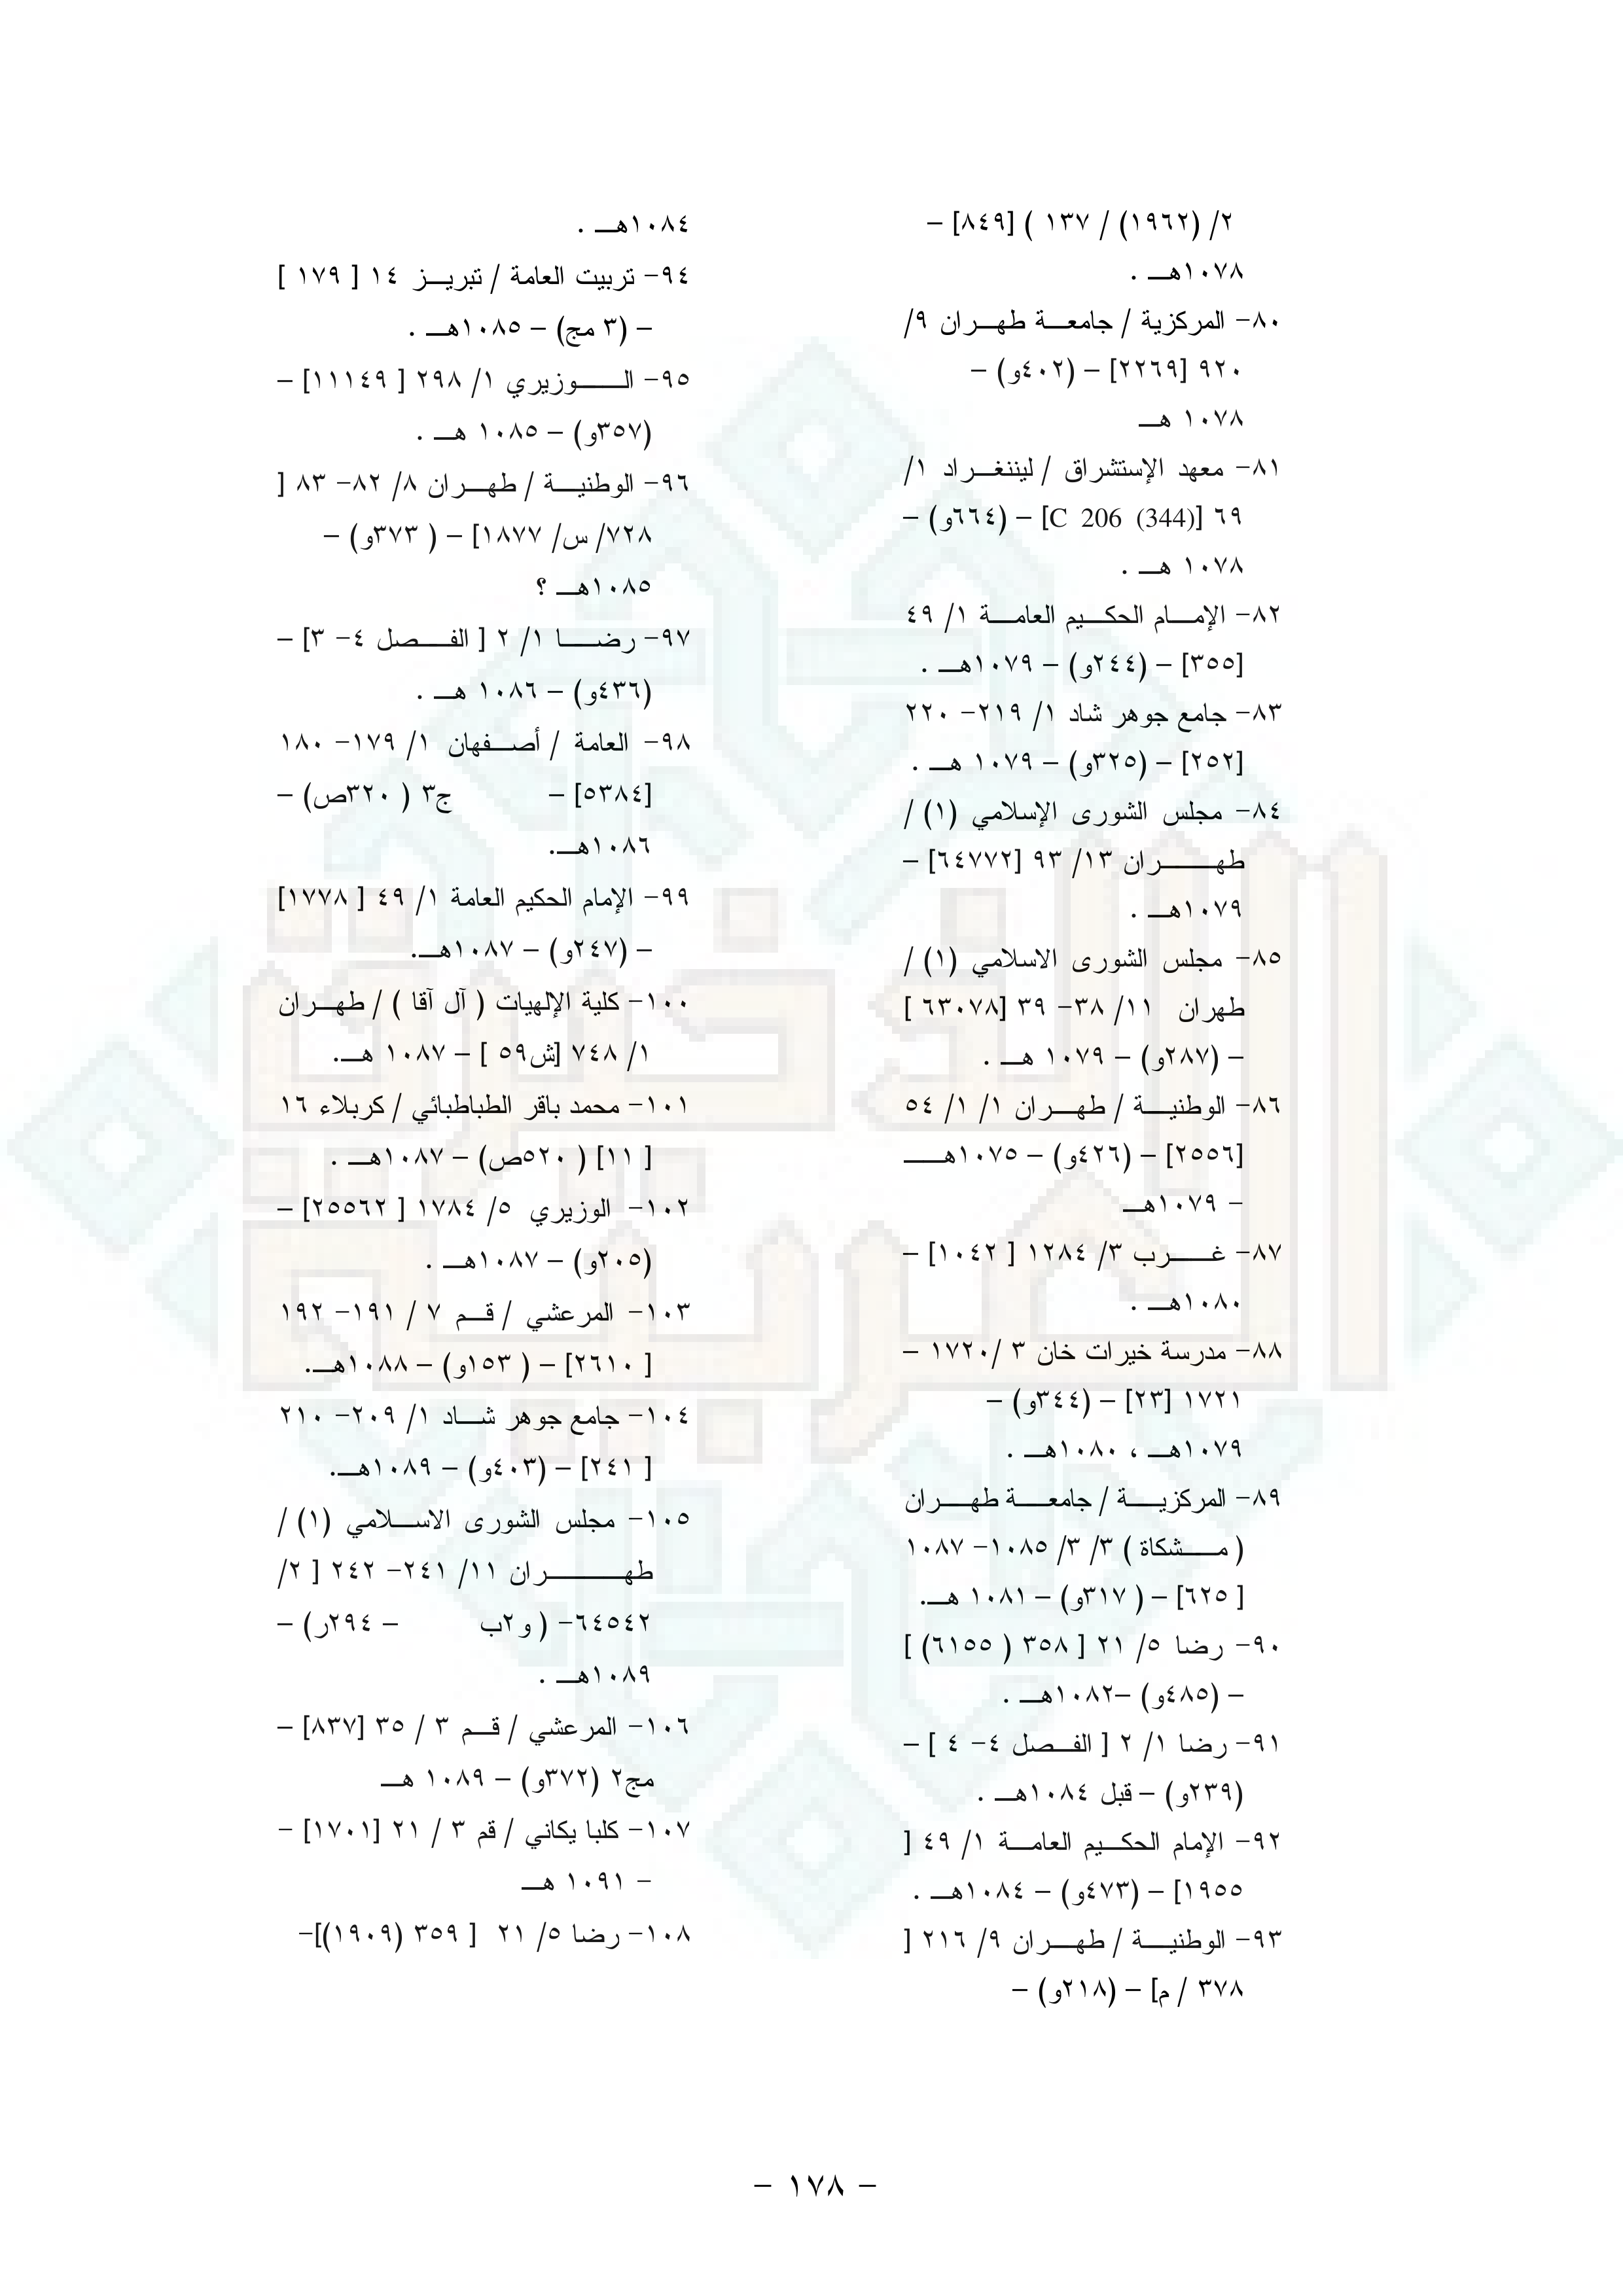 ٢/ (١٩٦٢) / ١٣٧ ) [٨٤٩] –
١٠٧٨هـ .
٨٠- المركزية / جامعة طهران ٩/
٩٢٠ [٢٢٦٩] – (٤٠٢و) –
١٠٧٨ هـ
٨١- معهد الإستشراق / ليننغراد ١/
٦٩ [C 206 (344)] – (٦٦٤و) –
١٠٧٨ هـ .
٨٢- الإمام الحكيم العامة ١/ ٤٩
[٣٥٥] – (٢٤٤و) – ١٠٧٩هـ .
٨٣- جامع جوهر شاد ١/ ٢١٩- ٢٢٠
[٢٥٢] – (٣٢٥و) – ١٠٧٩ هـ .
٨٤- مجلس الشورى الإسلامي (١) /
طهران ١٣/ ٩٣ [٦٤٧٧٢] –
١٠٧٩هـ .
٨٥- مجلس الشورى الاسلامي (١) /
طهران ١١/ ٣٨- ٣٩ [٦٣٠٧٨ ]
– (٢٨٧و) – ١٠٧٩ هـ .
٨٦- الوطنية / طهران ١/ ١/ ٥٤
[٢٥٥٦] – (٤٢٦و) – ١٠٧٥هـ
– ١٠٧٩هـ
٨٧- غرب ٣/ ١٢٨٤ [ ١٠٤٢] –
١٠٨٠هـ .
٨٨- مدرسة خيرات خان ٣ /١٧٢٠ –
١٧٢١ [٢٣] – (٣٤٤و) –
١٠٧٩هـ ، ١٠٨٠هـ .
٨٩- المركزية / جامعة طهران
( مشكاة ) ٣/ ٣/ ١٠٨٥- ١٠٨٧
[ ٦٢٥] – ( ٣١٧و) – ١٠٨١ هـ.
٩٠- رضا ٥/ ٢١ [ ٣٥٨ ( ٦١٥٥) ]
– (٤٨٥و) –١٠٨٢هـ .
٩١- رضا ١/ ٢ [ الفصل ٤- ٤ ] –
(٢٣٩و) – قبل ١٠٨٤هـ .
٩٢- الإمام الحكيم العامة ١/ ٤٩ [
١٩٥٥] – (٤٧٣و) – ١٠٨٤هـ .
٩٣- الوطنية / طهران ٩/ ٢١٦ [
٣٧٨ / م] – (٢١٨و) –
١٠٨٤هـ .
٩٤- تربيت العامة / تبريز ١٤ [ ١٧٩ ]
– (٣ مج) – ١٠٨٥هـ .
٩٥- الوزيري ١/ ٢٩٨ [ ١١١٤٩] –
(٣٥٧و) – ١٠٨٥ هـ .
٩٦- الوطنية / طهران ٨/ ٨٢- ٨٣ [
٧٢٨/ س/ ١٨٧٧] – ( ٣٧٣و) –
١٠٨٥هـ ؟
٩٧- رضا ١/ ٢ [ الفصل ٤- ٣] –
(٤٣٦و) – ١٠٨٦ هـ .
٩٨- العامة / أصفهان ١/ ١٧٩- ١٨٠
[٥٣٨٤] – ج٣ ( ٣٢٠ص) –
١٠٨٦هـ.
٩٩- الإمام الحكيم العامة ١/ ٤٩ [ ١٧٧٨]
– (٢٤٧و) – ١٠٨٧هـ.
١٠٠- كلية الإلهيات ( آل آقا ) / طهران
١/ ٧٤٨ [ش٥٩ ] – ١٠٨٧ هـ.
١٠١- محمد باقر الطباطبائي / كربلاء ١٦
[ ١١] ( ٥٢٠ص) – ١٠٨٧هـ .
١٠٢- الوزيري ٥/ ١٧٨٤ [ ٢٥٥٦٢] –
(٢٠٥و) – ١٠٨٧هـ .
١٠٣- المرعشي / قم ٧ / ١٩١- ١٩٢
[ ٢٦١٠] – ( ١٥٣و) – ١٠٨٨هـ.
١٠٤- جامع جوهر شاد ١/ ٢٠٩- ٢١٠
[ ٢٤١] – (٤٠٣و) – ١٠٨٩هـ.
١٠٥- مجلس الشورى الاسلامي (١) /
طهران ١١/ ٢٤١- ٢٤٢ [ ٢/
٦٤٥٤٢- ( و٢ب – ٢٩٤ر) –
١٠٨٩هـ .
١٠٦- المرعشي / قم ٣ / ٣٥ [٨٣٧] –
مج٢ (٣٧٢و) – ١٠٨٩ هـ
١٠٧- كلبا يكاني / قم ٣ / ٢١ [١٧٠١] –
– ١٠٩١ هـ
١٠٨- رضا ٥/ ٢١ [ ٣٥٩ (١٩٠٩)]–
– ١٧٨ –